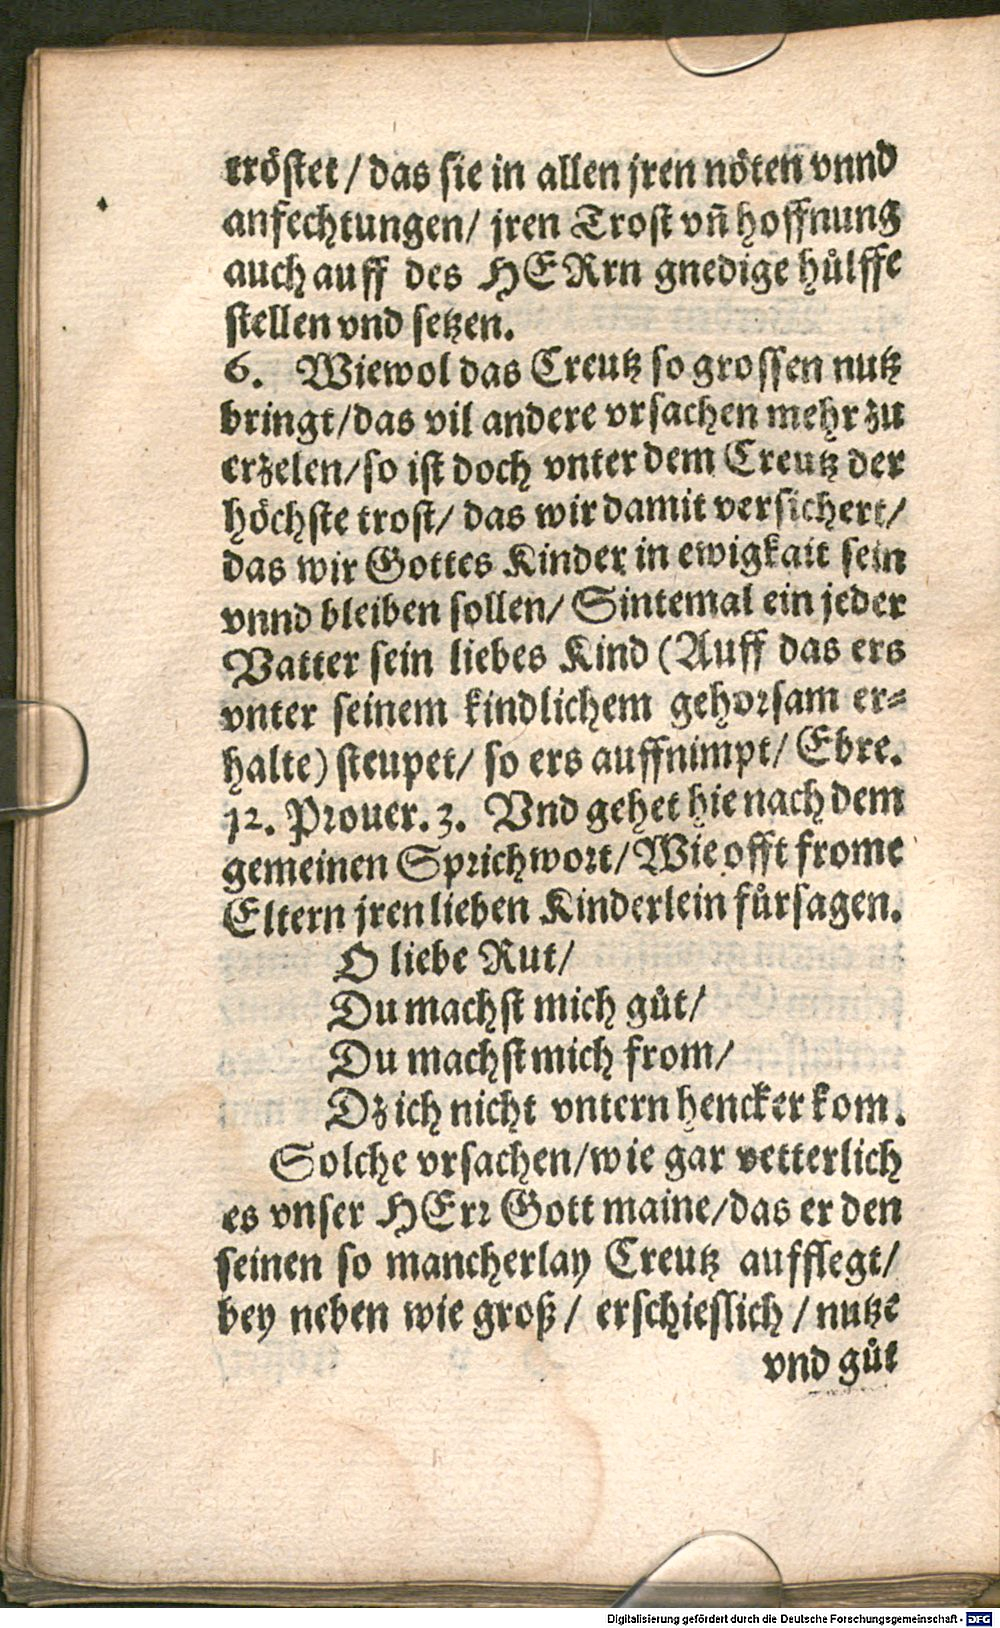 tröstet / das sie in allen jren nöten vnnd
anfechtungen / jren Trost vn̄ hoffnung
auch auff des HERrn gnedige hůlffe
stellen vnd setzen.
6. Wiewol das Creutz so grossen nutz
bringt / das vil andere vrsachen mehr zu
erzelen / so ist doch vnter dem Creutz der
höchste trost / das wir damit versichert /
das wir Gottes Kinder in ewigkait sein
vnnd bleiben sollen / Sintemal ein jeder
Vatter sein liebes Kind (Auff das ers
vnter seinem kindlichem gehorsam er⸗
halte) steupet / so ers auffnimpt / Ebre.
12. Prouer. 3. Vnd gehet hie nach dem
gemeinen Sprichwort / Wie offt frome
Eltern jren lieben Kinderlein fůrsagen.
O liebe Rut /
Du machst mich gůt /
Du machst mich from /
Dz ich nicht vntern hencker kom.
Solche vrsachen / wie gar vetterlich
es vnser HErr Gott maine / das er den
seinen so mancherlay Creutz aufflegt /
bey neben wie groß / erschieslich / nutze
vnd gůt
Digitalisierung gefördert durch die Deutsche Forschungsgemeinschaft - DFG